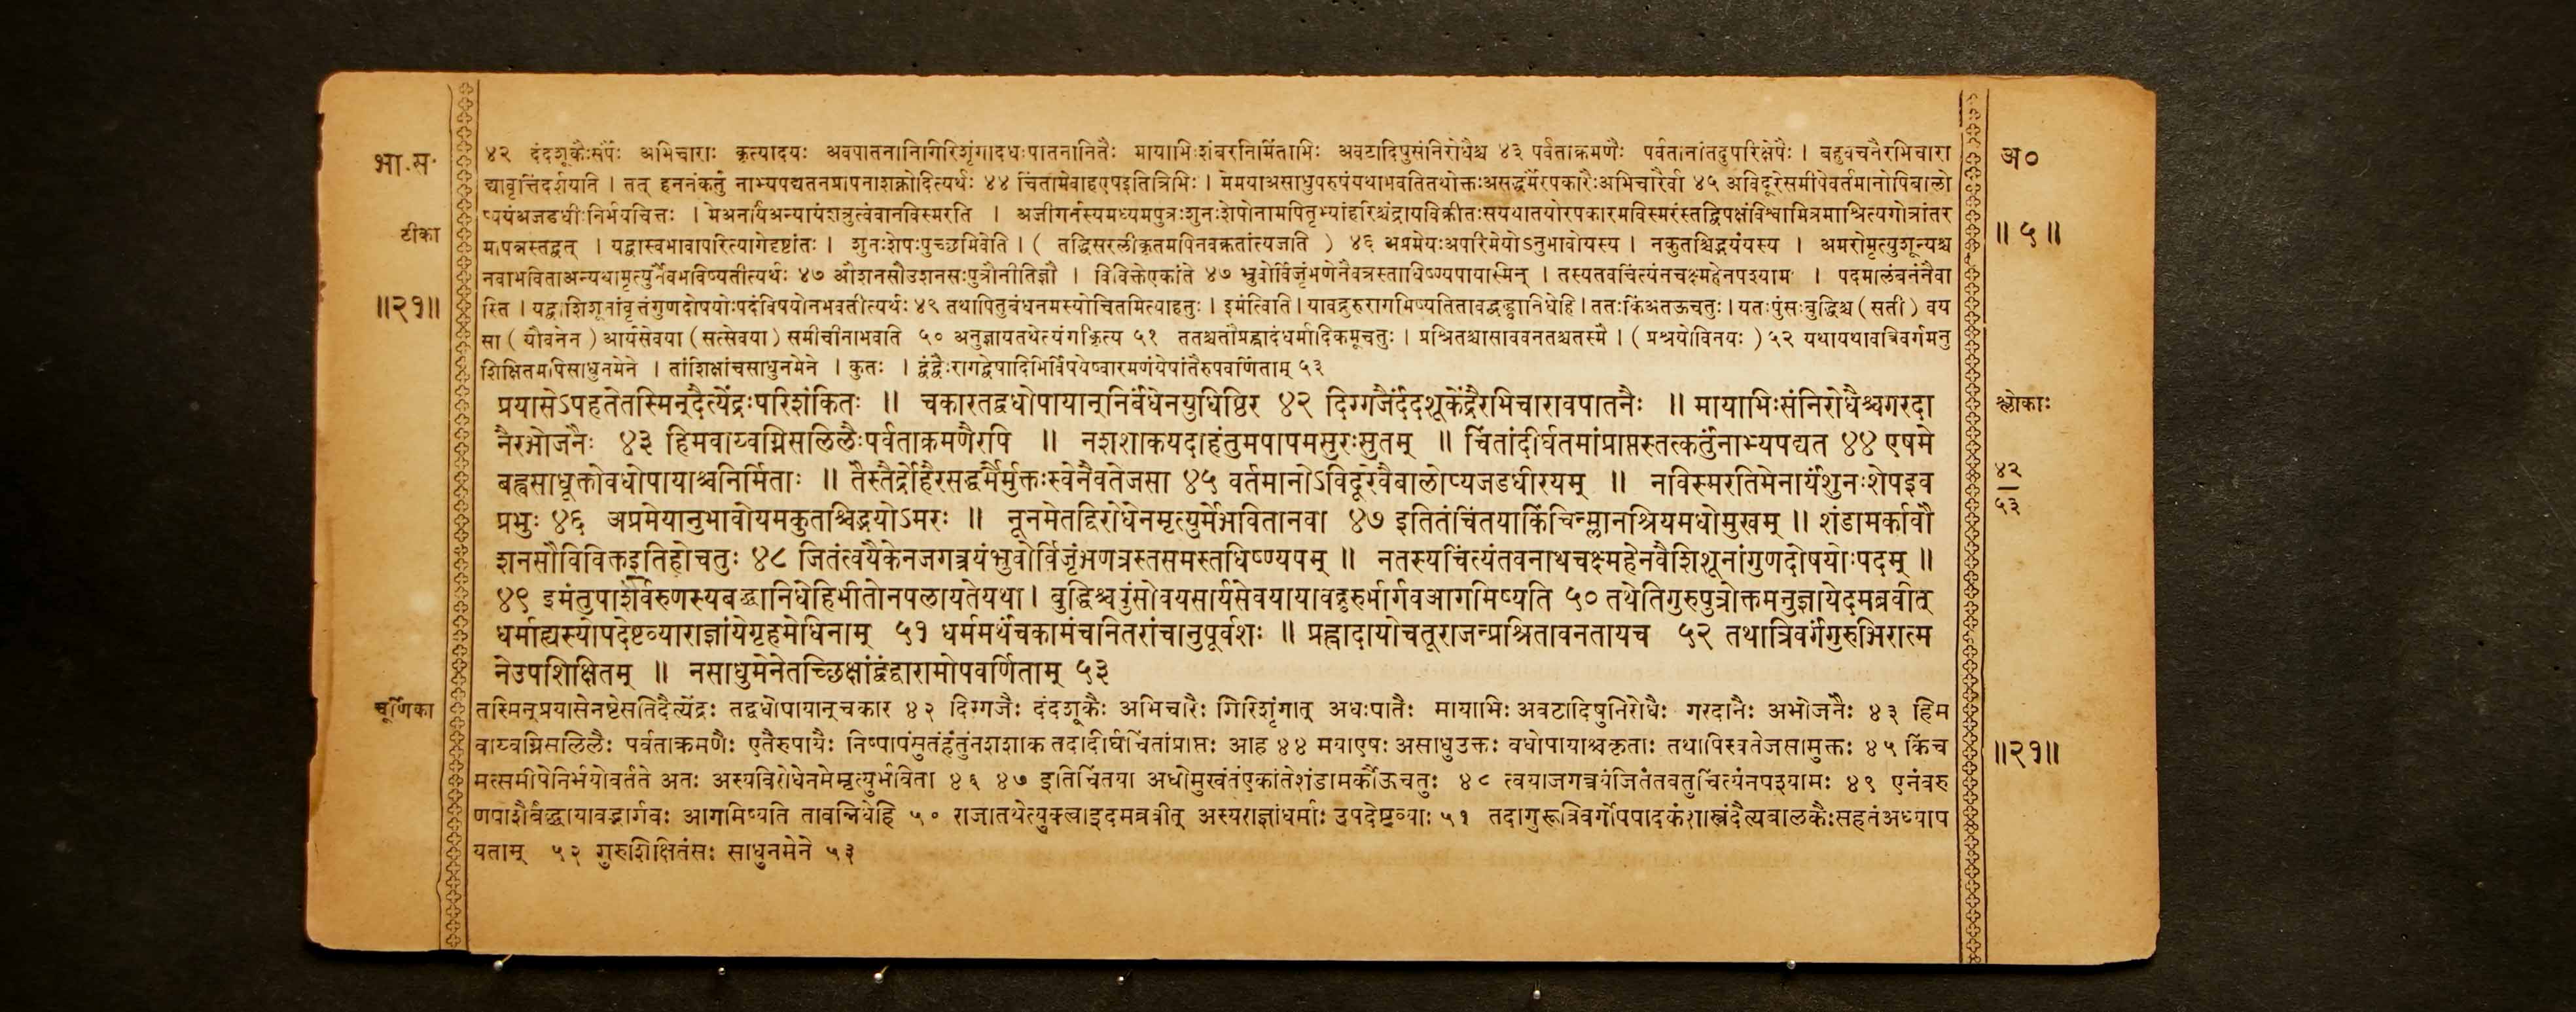 भा.स.
टीका
॥२१॥
४२ दंदशूकैःसर्पैः अभिचाराः कृत्यादयः अवपातनानिगिरिशृंगादधःपातनानितैः मायाभिःशंबरनिर्मिताभिः अवटादिषुसंनिरोधैश्च ४३ पर्वताक्रमणैः पर्वतानांतदुपरिक्षेपैः । बहुवचनैरभिचारा
द्यावृत्तिंदर्शयति । तत् हननंकर्तुं नाभ्यपद्यतनप्रापनाशक्नोदित्यर्थः ४४ चिंतामेवाहएषइतित्रिभिः । मेमयाअसाधुपरुषंयथाभवतितथोक्तःअसद्धर्मैरपकारैःअभिचारैर्वा ४५ अविदूरेसमीपेवर्तमानोपिबालो
प्ययंअजडधीःनिर्भयचित्तः । मेअनार्यंअन्यायंशत्रुत्वंवानविस्मरति । अजीगर्तस्यमध्यमपुत्रःशुनःशेपोनामपितृभ्यांहरिश्चंद्रायविक्रीतःसयथातयोरपकारमविस्मरंस्तद्विपक्षंविश्वामित्रमाश्रित्यगोत्रांतर
मापन्नस्तद्वत् । यद्वास्वभावापरित्यागेदृष्टांतः । शुनःशेपःपुच्छमिवेति । ( तद्धिसरलीकृतमपिनवक्रतांत्यजाति ) ४६ अप्रमेयःअपरिमेयोऽनुभावोयस्य । नकुतश्चिद्भयंयस्य । अमरोमृत्युशून्यश्च
नवाभविताअन्यथामृत्युर्नैवभविष्यतीत्यर्थः ४७ औशनसौउशनसःपुत्रौनीतिज्ञौ । विविक्तेएकांते ४७ भ्रुवोर्विजृंभणेनैवत्रस्ताधिष्ण्यपायास्मिन् । तस्यतवचिंत्यंनचक्ष्महेनपश्यामः । पदमालंबनंनैवा
स्ति । यद्वाशिशूनांवृत्तंगुणदोषयोःपदंविषयोनभवतीत्यर्थः ४९ तथापितुबंधनमस्योचितमित्याहतुः । इमंत्विति । यावद्गुरुरागमिष्यतितावद्बद्ध्वानिधेहि । ततःकिंअतऊचतुः । यतःपुंसःबुद्धिश्च (सती) वय
सा ( यौवनेन ) आर्यसेवया (सत्सेवया) समीचीनाभवति ५० अनुज्ञायतथेत्यंगीकृत्य ५१ ततश्चतौप्रह्लादंधर्मादिकमूचतुः । प्रश्रितश्चासाववनतश्चतस्मै । ( प्रश्रयोविनयः ) ५२ यथायथावत्त्रिवर्गमनु
शिक्षितमपिसाधुनमेने । तांशिक्षांचसाधुनमेने । कुतः । द्वंद्वैःरागद्वेषादिभिर्विषयेष्वारमणंयेषांतैरुपवर्णिताम् ५३
प्रयासेऽपहतेतस्मिन्दैत्येंद्रःपरिशंकितः ॥ चकारतद्वधोपायान्निर्बंधेनयुधिष्ठिर ४२ दिग्गजैर्दंदशूकेंद्रैरभिचारावपातनैः ॥ मायाभिःसंनिरोधैश्चगरदा
नैरभोजनैः ४३ हिमवाय्वग्निसलिलैःपर्वताक्रमणैरपि ॥ नशशाकयदाहंतुमपापमसुरःसुतम् ॥ चिंतांदीर्घतमांप्राप्तस्तत्कर्तुंनाभ्यपद्यत ४४ एषमे
बह्वसाधूक्तोवधोपायाश्चनिर्मिताः ॥ तैस्तैर्द्रोहैरसद्धर्मैर्मुक्तःस्वेनैवतेजसा ४५ वर्तमानोऽविदूरेवैबालोप्यजडधीरयम् ॥ नविस्मरतिमेनार्यंशुनःशेपइव
प्रभुः ४६ अप्रमेयानुभावोयमकुतश्चिद्भयोऽमरः ॥ नूनमेतद्विरोधेनमृत्युर्मेभवितानवा ४७ इतितंचिंतयाकिंचिन्म्लानश्रियमधोमुखम् ॥ शंडामर्कावौ
शनसौविविक्तइतिहोचतुः ४८ जितंत्वयैकेनजगत्त्रयंभ्रुवोर्विजृंभणत्रस्तसमस्तधिष्ण्यपम् ॥ नतस्यचिंत्यंतवनाथचक्ष्महेनवैशिशूनांगुणदोषयोःपदम् ॥
४९ इमंतुपाशैर्वरुणस्यबद्ध्वानिधेहिभीतोनपलायतेयथा । बुद्धिश्चपुंसोवयसार्यसेवयायावद्गुरुर्भार्गवआगमिष्यति ५० तथेतिगुरुपुत्रोक्तमनुज्ञायेदमब्रवीत्
धर्माह्यस्योपदेष्टव्याराज्ञांयेगृहमेधिनाम् ५१ धर्ममर्थंचकामंचनितरांचानुपूर्वशः ॥ प्रह्लादायोचतूराजन्प्रश्रितावनतायच ५२ तथात्रिवर्गंगुरुभिरात्म
नेउपशिक्षितम् ॥ नसाधुमेनेतच्छिक्षांद्वंद्वारामोपवर्णिताम् ५३
चूर्णिका
तस्मिन्प्रयासेनष्टेसतिदैत्येंद्रः तद्वधोपायान्चकार ४२ दिग्गजैः दंदशूकैः अभिचारैः गिरिशृंगात् अधःपातैः मायाभिः अवटादिषुनिरोधैः गरदानैः अभोजनैः ४३ हिम
वाय्वग्निसलिलैः पर्वताक्रमणैः एतैरुपायैः निष्पापंसुतंहंतुंनशशाक तदादीर्घचिंतांप्राप्तः आह ४४ मयाएषः असाधुउक्तः वधोपायाश्चकृताः तथापिस्वतेजसामुक्तः ४५ किंच
मत्समीपेनिर्भयोवर्तते अतः अस्यविरोधेनमेमृत्युर्भविता ४६ ४७ इतिचिंतया अधोमुखंतंएकांतेशंडामर्कौऊचतुः ४८ त्वयाजगत्त्रयंजितंतवतुचिंत्यंनपश्यामः ४९ एनंवरु
णपाशैर्बद्ध्वायावद्भार्गवः आगमिष्यति तावन्निधेहि ५० राजातथेत्युक्त्वाइदमब्रवीत् अस्यराज्ञांधर्माः उपदेष्टव्याः ५१ तदागुरूत्रिवर्गोपपादकंशास्त्रंदैत्यबालकैःसहतंअध्याप
यताम् ५२ गुरुशिक्षितंसः साधुनमेने ५३
अ०
॥५॥
श्लोकाः
४२
५३
॥२१॥